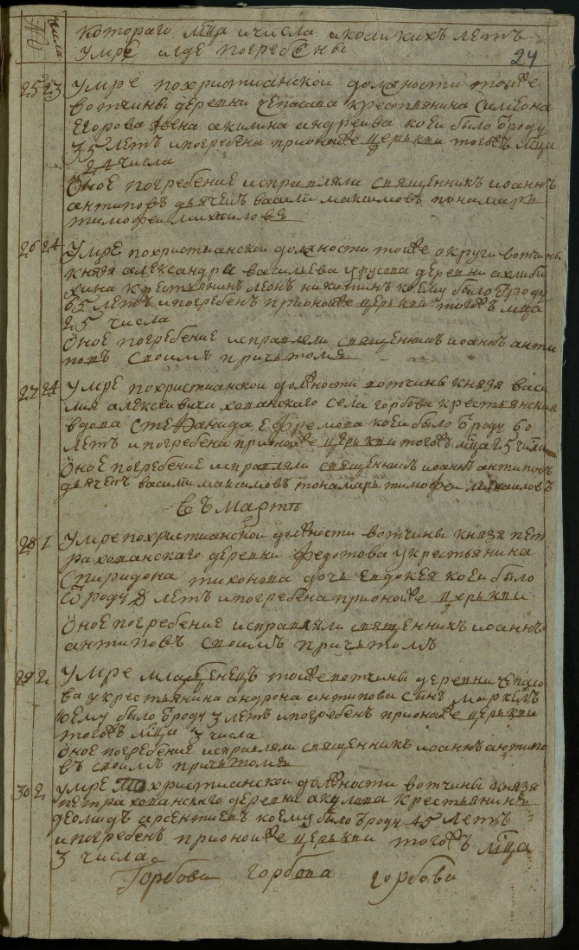 числа
котораго мца и числа и коликихъ летъ
умре и где погребены
24
25 23 умре похристианской должности тоиже
вотчины деревни крестьянина Симиона
Егорова жена акилина андреева коеи было ѿроду
75 летъ и погребена прионоиже церькви тогожъ мца
числа
Оное погребение исправляли священникъ иоаннъ
антиповъ дьячекъ васили максимовъ понамарь
тимофеи михаиловъ
26 24 Умре похристианской должности тоиже округи вотчины
князя александра василева урусова деревни
крестьянинъ леонъ никитинъ коему было ѿроду
65 летъ и погребенъ прионоиже церькви тогожъ мца
25 числа
Оное погребение исправляли священникъ иоаннъ анти
повъ своимъ причтомъ
27 24 Умре похристианской должности вотчины князя васи
лия алексеевича хованскаго села горбова крестьянская
вдова Стефанида Ефремова коеи было ѿроду 60
летъ и погребена прионоиже церькви тогожъ мца 25 числа
Оное погребение исправляли священникъ иоаннъ антиповъ
дьячекъ васили максимовъ понамарь тимофеи михаиловъ
въ Марте
28 1 Умре похристианской должности вотчины князя пет
ра хованскаго деревни федотова у крестьянина
Спиридона тихонова дочь евдокея коеи было
ѿроду летъ и погребена прионоиже церькви
Оное погребение исправляли священникъ иоаннъ
антиповъ своимъ причтомъ
29 2 Умре младенецъ тоиже вотчины деревни
ва у крестьянина андрона антипова сынъ
коему было ѿроду 3 летъ и погребенъ прионоиже церькви
тогожъ мца 3 числа
Оное погребение исправляли священникъ иоаннъ антипо
въ своимъ причтомъ
30 2 умре похристианской должности вотчины князя
петра хованскаго деревни акулова крестьянинъ
арсентиевъ коему было ѿроду 45 летъ
и погребенъ прионоиже церькви тогожъ мца
3 числа
Горбови горбова горбови